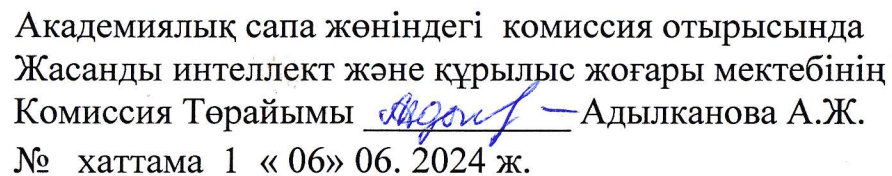 Академиялық сапа жөніндегі комиссия отырысында
Жасанды интеллект және құрылыс жоғары мектебінің
Комиссия Төрайымы ____________ Адылканова А.Ж.
№ хаттама 1 « 06» 06. 2024 ж.